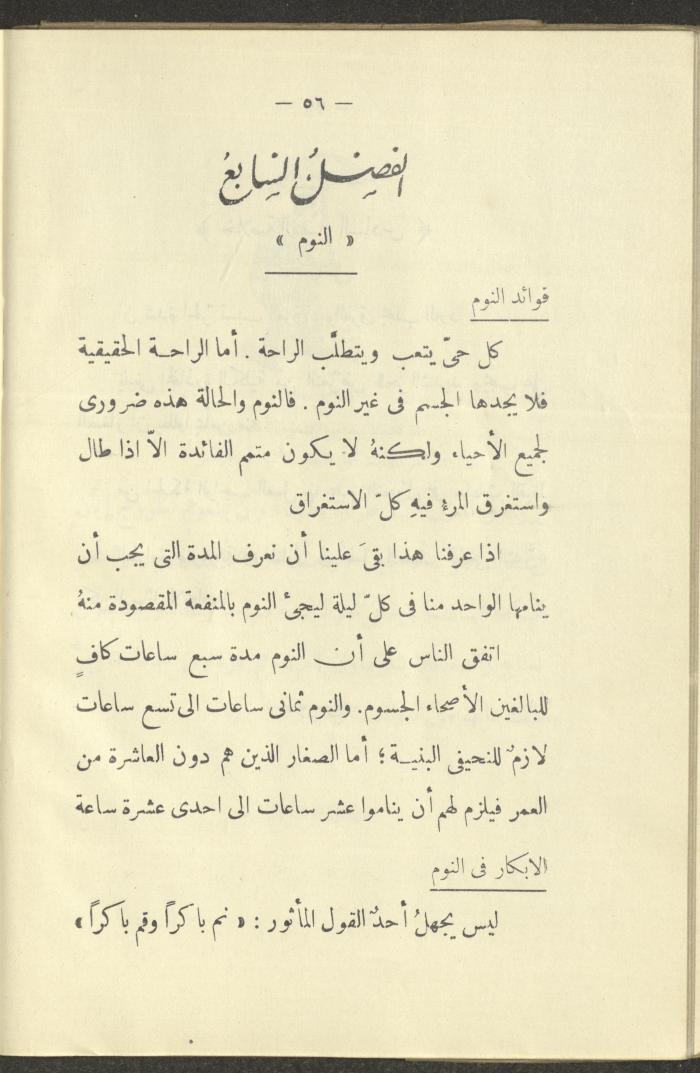 — ٥٦ —
الفصل السابع
« النوم »
فوائد النوم
كل حيّ يتعب ويتطلَّب الراحة . أما الراحة الحقيقية
فلا يجدها الجسم فى غير النوم . فالنوم والحالة هذه ضرورى
لجميع الأحياء ولكنهُ لا يكون متمم الفائدة الاّ اذا طال
واستغرق المرءُ فيهِ كلّ الاستغراق
اذا عرفنا هذا بقىَ علينا أن نعرف المدة التى يجب أن
ينامها الواحد منا فى كلّ ليلة ليجئ النوم بالمنفعة المقصودة منهُ
اتفق الناس على أن النوم مدة سبع ساعات كافٍ
للبالغين الأصحاء الجسوم. والنوم ثمانى ساعات الى تسع ساعات
لازمٌ للنحيفى البنية ؛ أما الصغار الذين هم دون العاشرة من
العمر فيلزم لهم أن يناموا عشر ساعات الى احدى عشرة ساعة
الابكار فى النوم
ليس يجهلُ أحدٌ القول المأثور : « نم باكراً وقم باكراً »